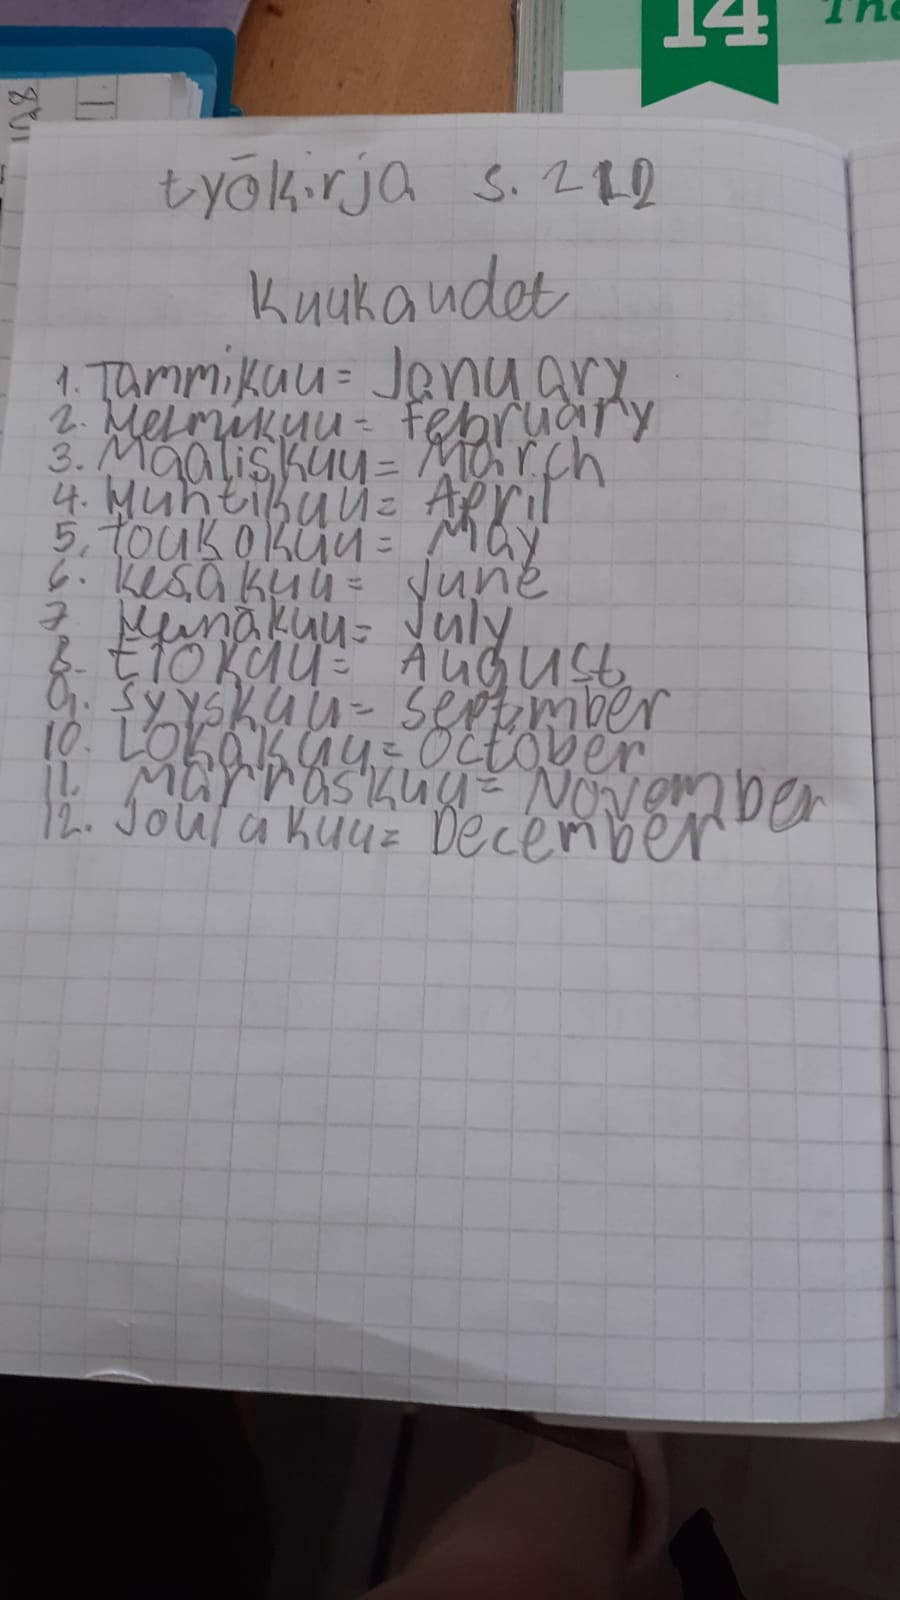 14 The
työkirja s. 212
Kuukaudet
1. Tammikuu = January
2. Helmikuu = February
3. Maaliskuu = March
4. Huhtikuu = April
5. toukokuu = May
6. kesäkuu = June
7 Heinäkuu = July
8. Elokuu = August
9. Syyskuu = September
10. Lokakuu = October
11. Marraskuu = November
12. Joulakuu = December